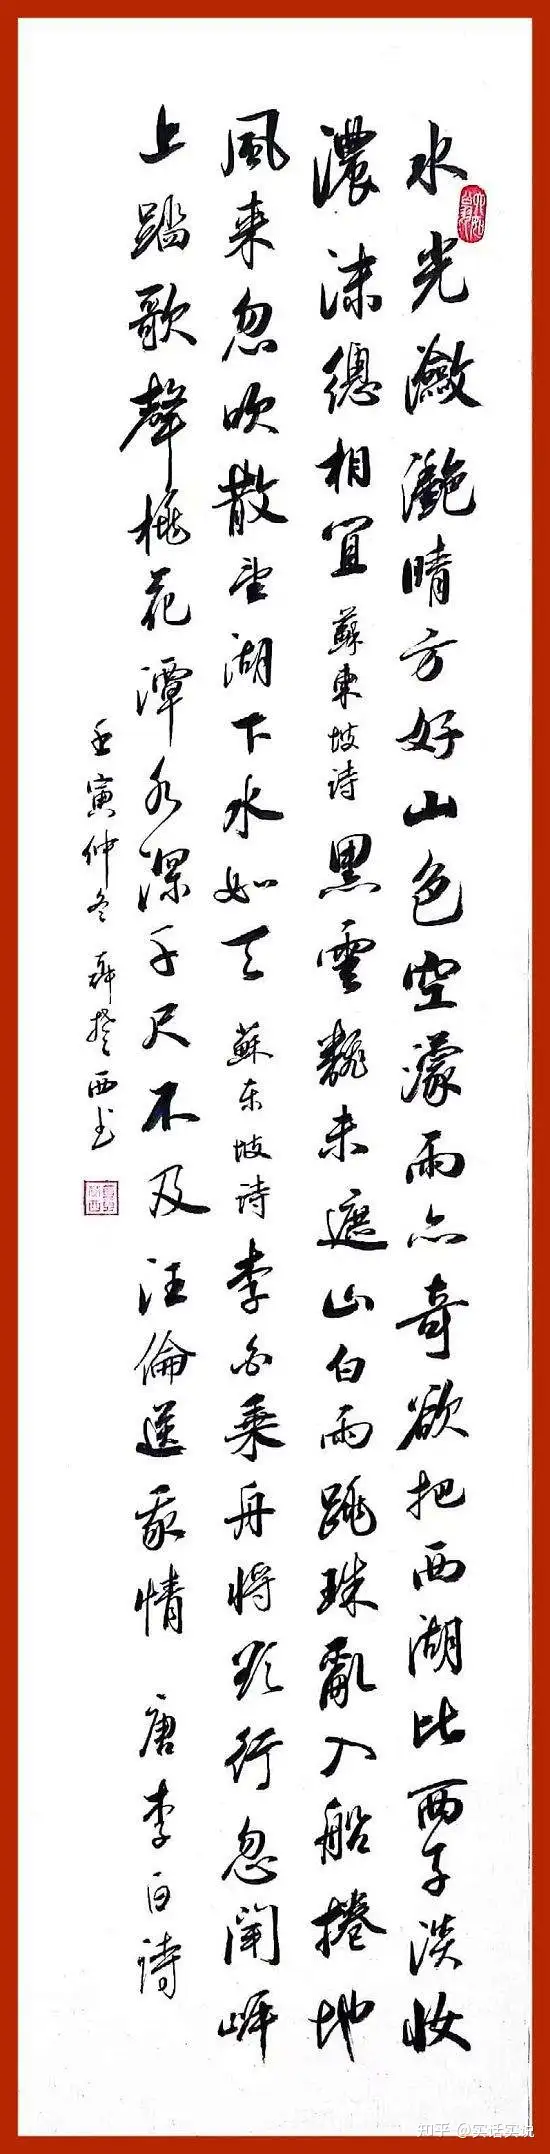 水光瀲灩晴方好山色空濛雨亦奇欲把西湖比西子淡妆
濃沫總相宜 蘇東坡诗 黑雲翻未遮山白雨跳珠亂入船捲地
風来忽吹散望湖下水如天 蘇东坡诗 李白乘舟将欲行忽聞岸
上踏歌聲桃花潭水深千尺不及汪倫送我情 唐李白诗
壬寅仲冬 西书
知乎 @实话实说